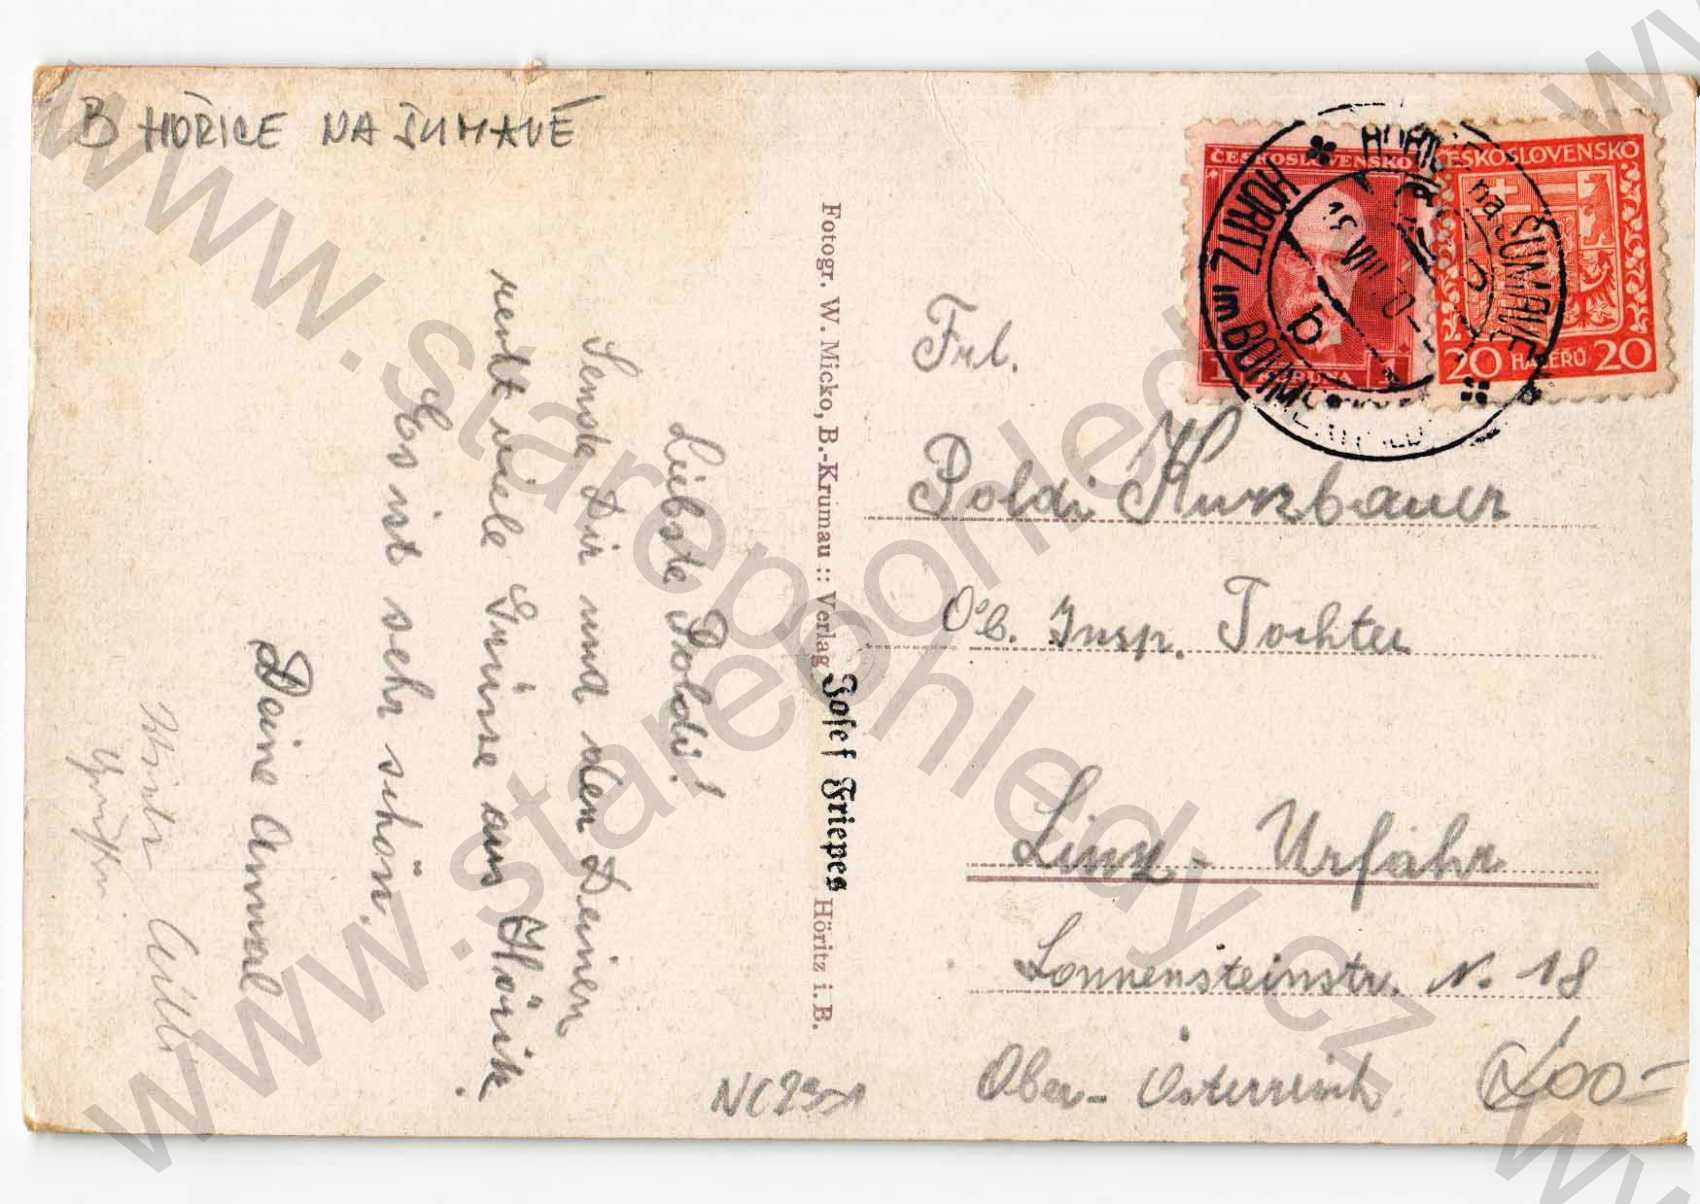 B HOŘICE NA ŠUMAVĚ
Liebste Poldi!
Sende Dir und den Deinen
recht viele Grüsse aus Höritz.
Es ist sehr schön.
Deine Annerl
Fotogr. W. Micko, B.-Krumau :: Verlag Josef Friepes Höritz i. B.
ČESKOSLOVENSKO
1 KORUNA 1
ČESKOSLOVENSKO
20 HALÉŘŮ 20
HOŘICE na ŠUMAVĚ
HÖRITZ im BÖHMERWALD
b
Frl.
Poldi Kurzbauer
Ob. Insp. Tochter
Linz - Urfahr
Sonnensteinstr. N. 18
Ober - Österreich.
www.starepohledy.cz
www.starepohledy.cz